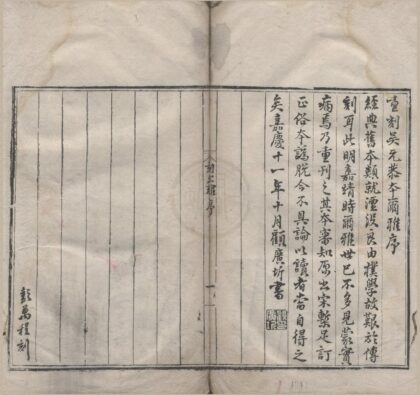 重刻吳元恭本爾雅序
經典舊本類就湮没良由樸學故艱於傳
刻耳此明嘉靖時爾雅世已不多見蒙實
病焉乃重刊之其本審知原出宋槧足訂
正俗本譌脫今不具論以讀者當自得之
矣嘉慶十一年十月顧廣圻書
序
一
彭萬程刻